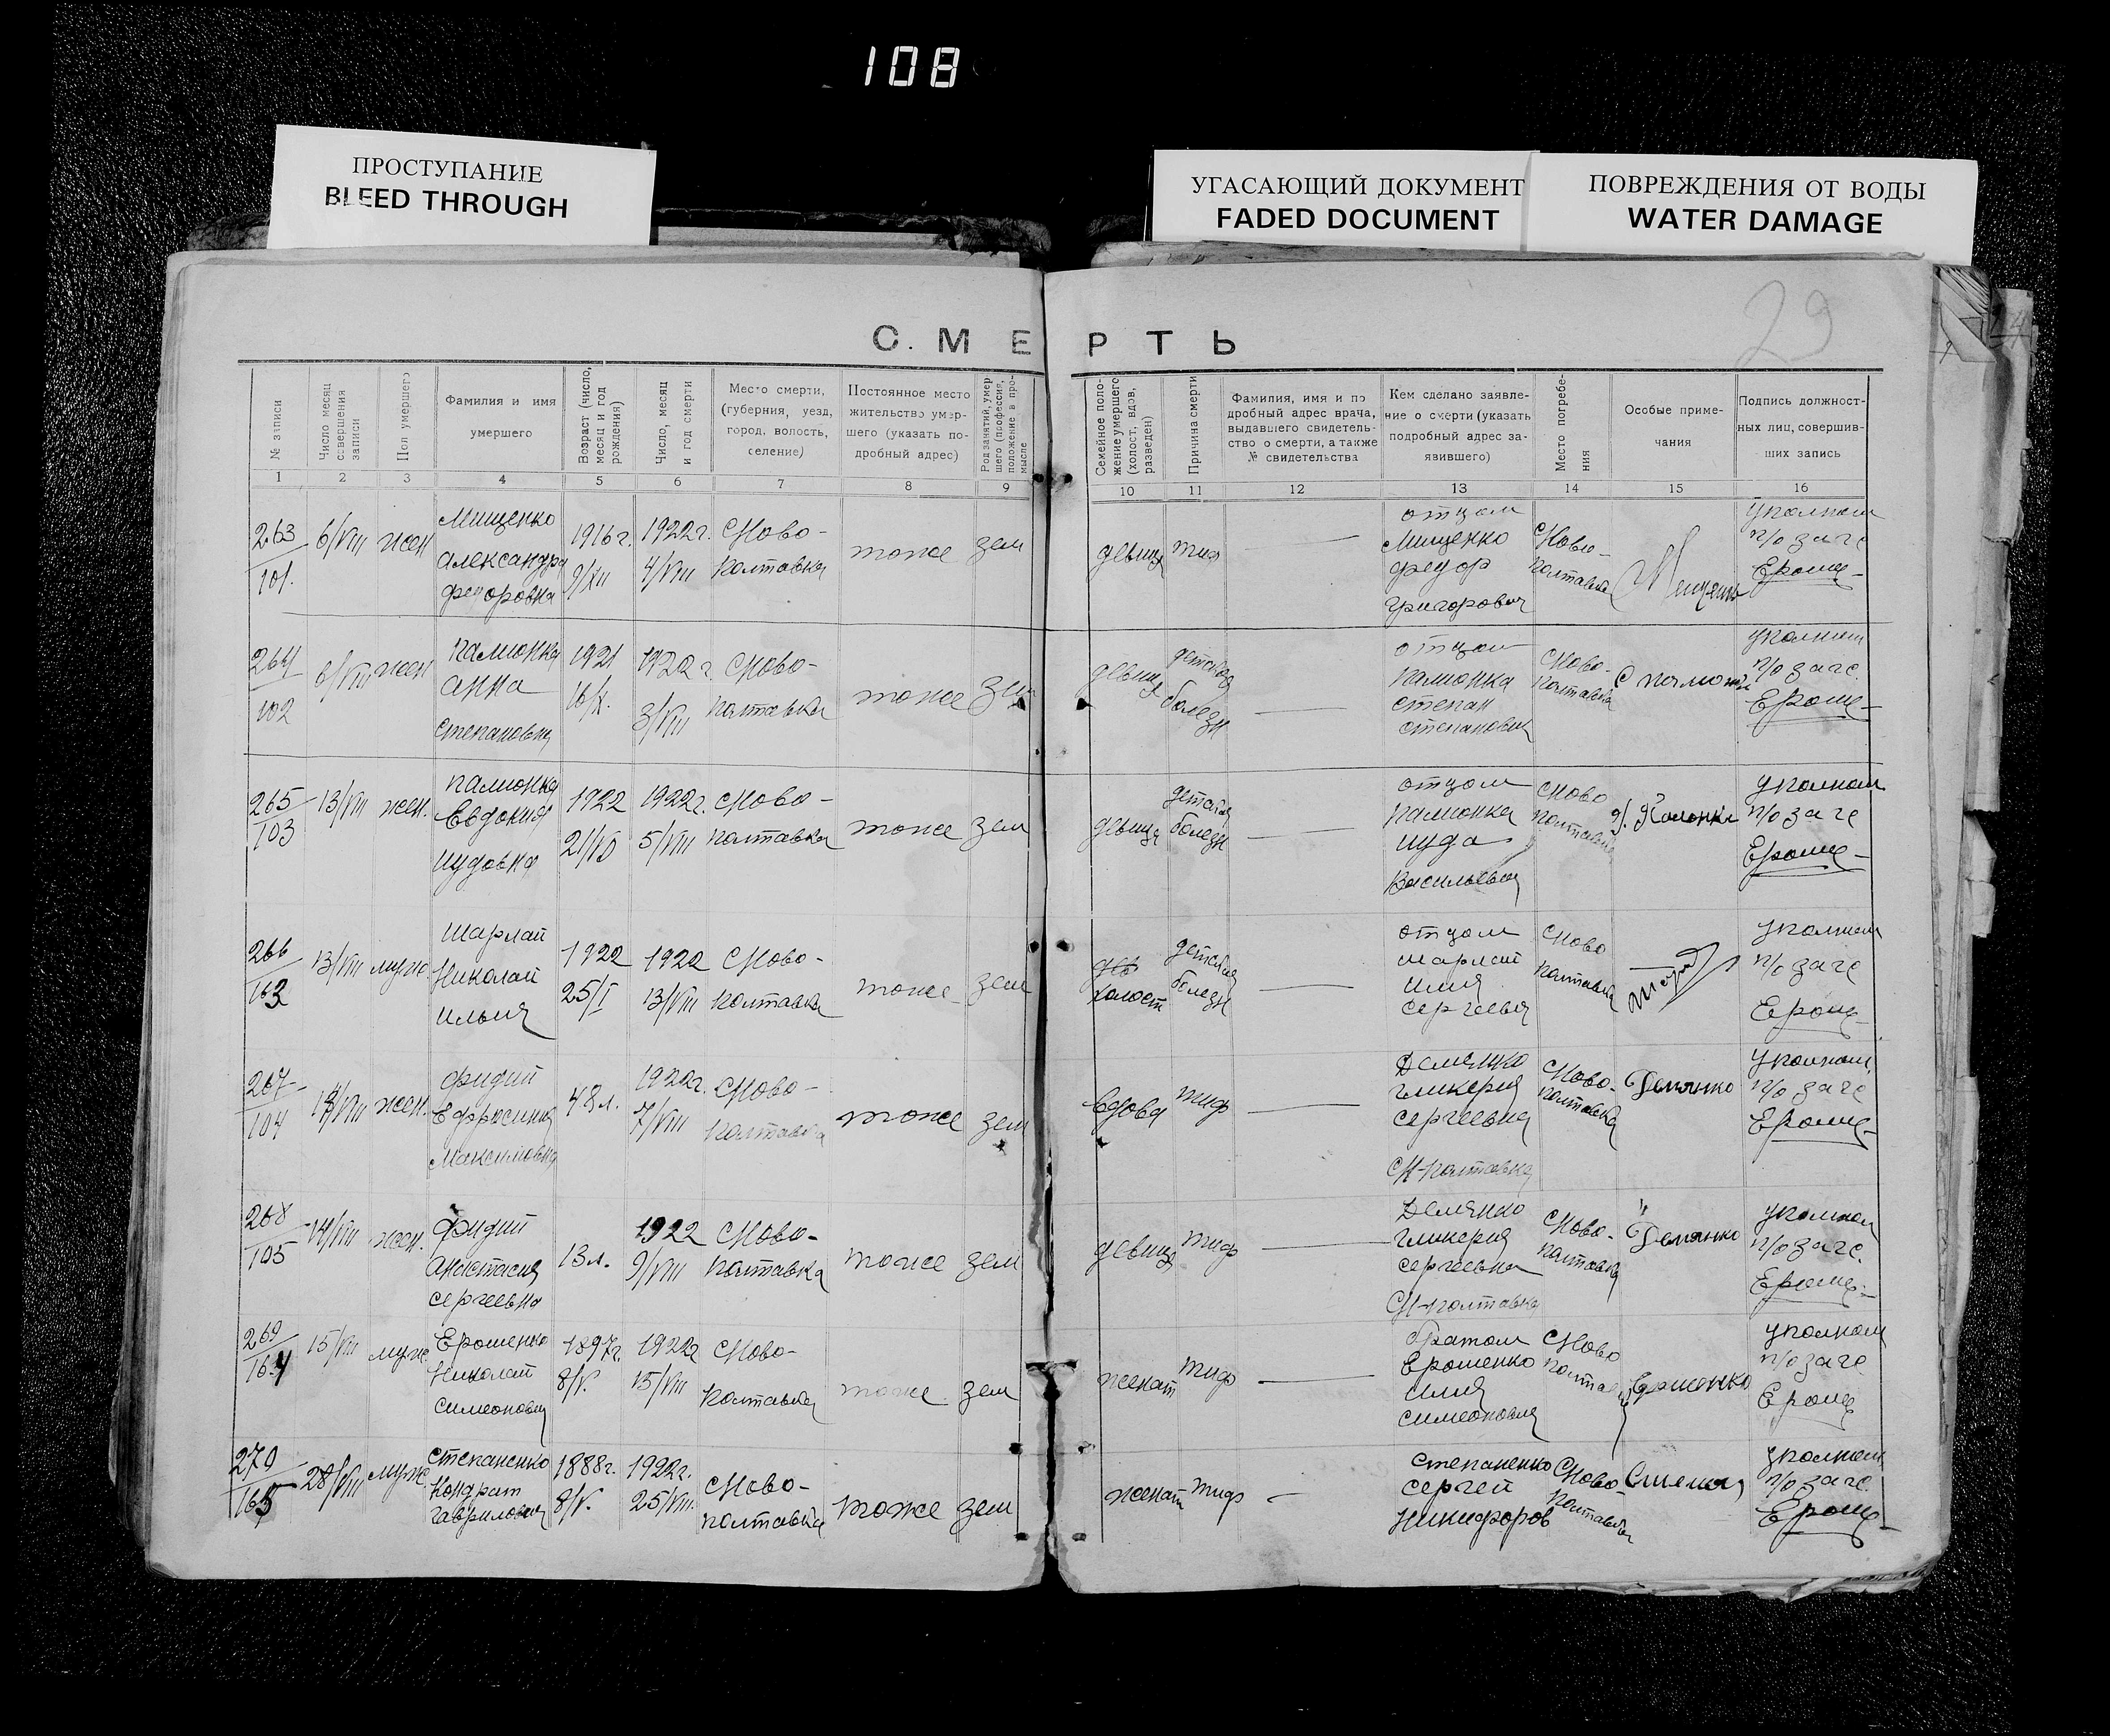 108
ПРОСТУПАНИЕ
BLEED THROUGH
УГАСАЮЩИЙ ДОКУМЕНТ
FADED DOCUMENT
ПОВРЕЖДЕНИЯ ОТ ВОДЫ
WATER DAMAGE
29
С.МЕРТЬ
№ записи
Число месяц
совершения
записи
Пол умершего
Фамилия и имя
умершего
Возраст (число,
месяц и год
рождения)
Число, месяц
и год смерти
Место смерти,
(губерния, уезд,
город, волость,
селение)
Постоянное место
жительство умер-
шего (указать по-
дробный адрес)
Род занятий, умер
шего (профессия,
положение в про-
мысле
Семейное поло-
жение умершего
(холост, вдов,
разведен)
Причина смерти
Фамилия, имя и по
дробный адрес врача,
выдавшего свидетель-
ство о смерти, а также
№ свидетельства
Кем сделано заявле-
ние о смерти (указать
подробный адрес за-
явившего)
Место погребе-
ния
Особые приме-
чания
Подпись должност-
ных лиц, совершив-
ших запись
1 2 3 4 5 6 7 8 9 10 11 12 13 14 15 16
263
101.
6/VIII
жен
Мищенко
Александра
Федоровна
1916г.
9/XII
1922г.
4/VIII
Ново-
полтавка
тоже
зем
девица
тиф
отцом
Мищенко
Федор
Григорович
Ново-
полтавка
уполном
п/о загс
Ероще-
264
102
6/VIII
жен
Палионка
Анна
Степановна
1921
16/X.
1922г
3/VIII
Ново-
полтавка
тоже
зем
девица
детская
болезн
отцом
Палионка
Степан
Степанович
Ново-
полтавка
уполном
п/о загс.
Ероще-
265
103
13/VIII
жен.
Палионка
Евдокия
Иудовна
1922
21/VI
1922г.
5/VIII
Ново-
полтавка
тоже
зем
девица
детская
болезн
отцом
Палионка
Иуда
Васильевич
Ново
полтавка
уполном
п/о загс
Ероще-
266
163
13/VIII
муж
Шарлай
Николай
Ильич
1922
25/I
1922
13/VIII
Ново-
полтавка
тоже
зем
холост
детская
болезн
отцом
Шарлай
Илия
Сергеевич
Ново
полтавка
уполном
п/о загс
Ероще-
267
104
14/VIII
жен.
Фидий
Ефросиния
Максимовна
48л.
1922г.
7/VIII
Ново-
полтавка
тоже
зем
вдова
тиф
Демянко
Гликерия
Сергеевна
Н-полтавка
Ново-
полтавка
Демянко
уполном
п/о загс
Ероще-
268
105
14/VIII
жен.
Фидий
Анастасия
Сергеевна
13л.
1922
9/VIII
Ново-
полтавка
тоже
зем
девица
тиф
Демянко
Гликерия
Сергеевна
Н-полтавка
Ново-
полтавка
Демянко
уполном
п/о загс.
Ероще-
269
164
15/VIII
муж.
Ерошенко
Николай
Симеонович
1897г.
8/V.
1922г
15/VIII
Ново-
полтавка
тоже
зем
женат
тиф
братом
Ерошенко
Илия
Симеонович
Ново
полтавка
уполном
п/о загс
Ероще
270
165
28/VIII
муж.
Степаненко
Кондрат
Гаврилович
1888г.
8/V.
1922г.
25/VIII.
Ново-
полтавка
тоже
зем
женат
тиф
Степаненко
Сергей
Никифоров
Ново-
полтавка
уполном
п/о загс.
Ероще-